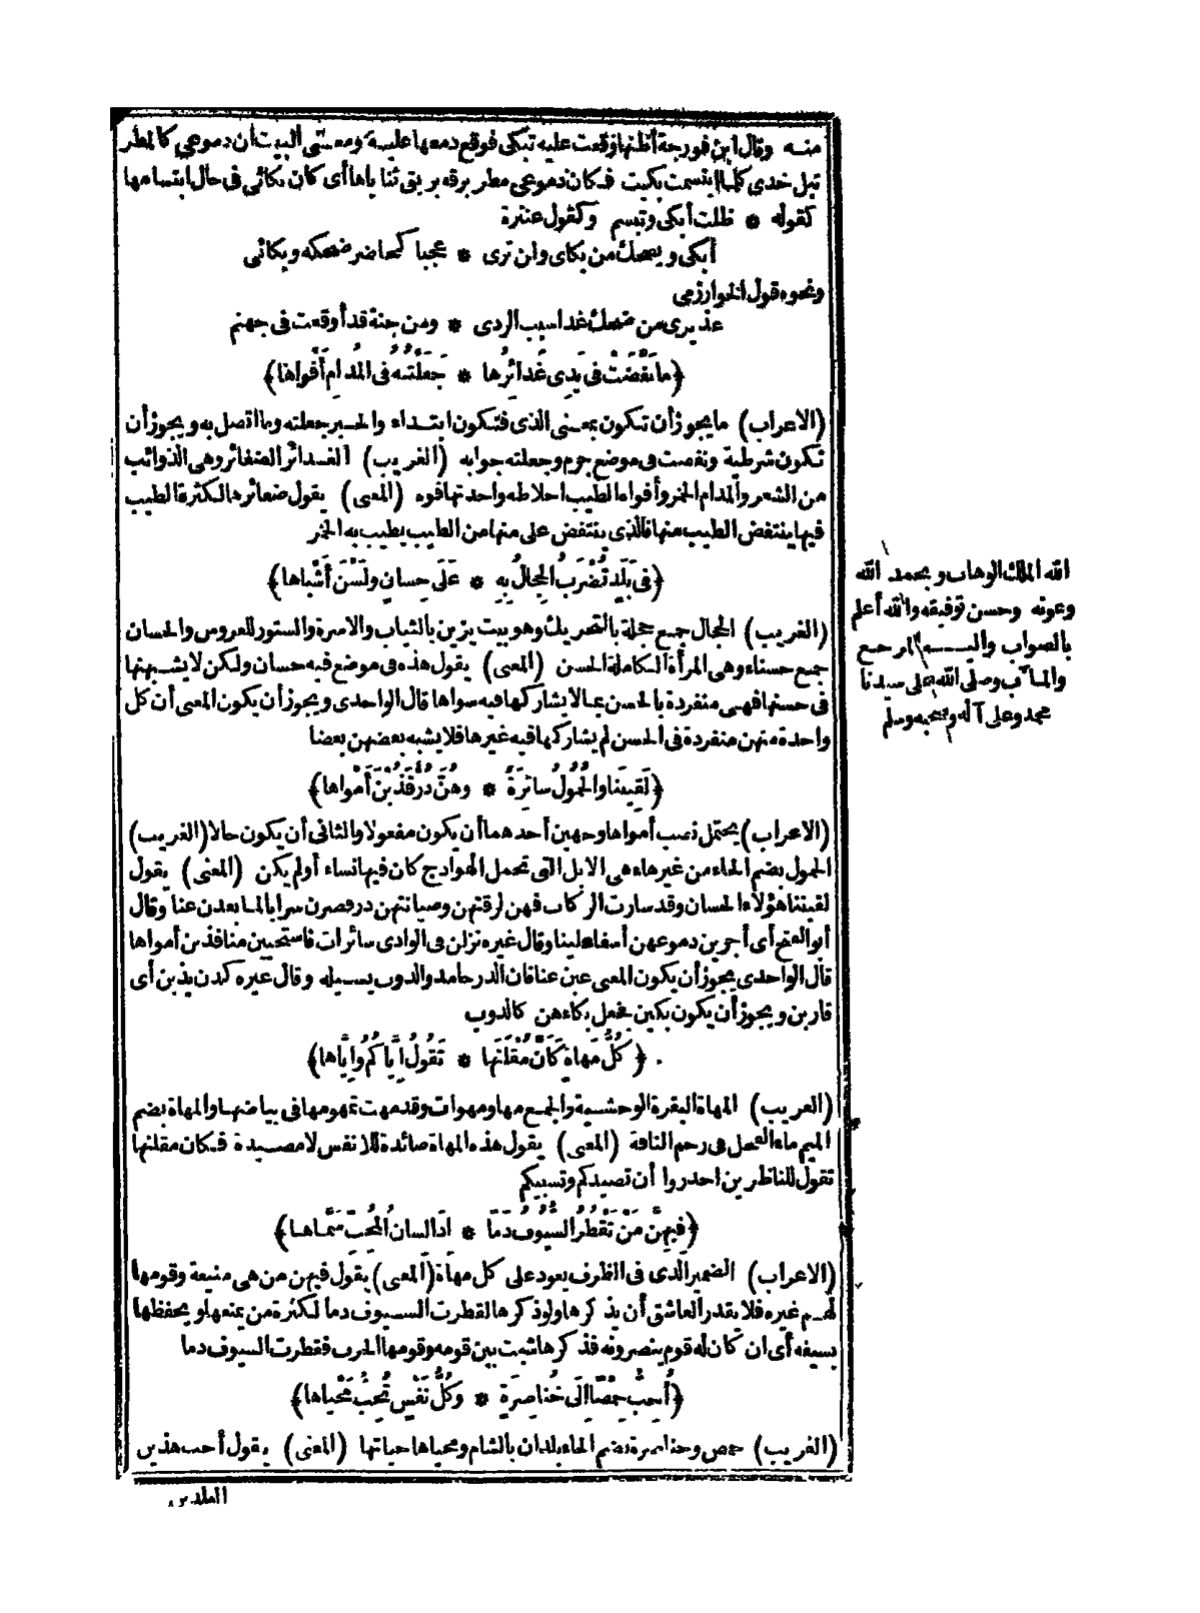 منه وقال ابن فورجة أظنها وقعت عليه تبكي فوقع دمعها عليه ومعنى البيت أن دموعي كالمطر
تبل خدي كلما ابتسمت بكيت فكان دموعي مطر برقه بريق ثناياها أى كان بكائى فى حال ابتسامها
كقوله * ظلت أبكى وتبسم وكقول عنترة
أبكى ويضحك من بكاى ولن ترى * عجبا كحاضر ضحكه وبكائى
ونحوه قول الخوارزمى
عذيرى من ضحك غدا سبب الردى * ومن جنة قد أوقعت فى جهنم
﴿ما نَفَضَتْ فى يَدِى غَدائِرُها * جَعَلَتْهُ فى المُدامِ أَفْواها﴾
(الاعراب) ما يجوز أن تكون بمعنى الذى فتكون ابتداء والخبر جعلته وما اتصل به ويجوز أن
تكون شرطية ونفضت فى موضع جزم وجعلته جوابه (الغريب) الغدائر الضفائر وهى الذوائب
من الشعر والمدام الخمر وأفواه الطيب اخلاطه واحدتها فوه (المعنى) يقول ضفائرها لكثرة الطيب
فيها ينتفض الطيب منها فالذى ينتفض على منها من الطيب يطيب به الخمر
﴿فى بَلَدٍ تُضْرَبُ الحِجالُ بِهِ * عَلَى حِسانٍ ولَسْنَ أَشْباها﴾
(الغريب) الحجال جمع حجلة بالتحريك وهو بيت يزين بالثياب والاسرة والستور للعروس والحسان
جمع حسناء وهى المرأة الكاملة الحسن (المعنى) يقول هذه فى موضع فيه حسان ولكن لا يشبهنها
فى حسنها فهى منفردة بالحسن بما لا يشاركها فيه سواها قال الواحدى ويجوز أن يكون المعنى أن كل
واحدة منهن منفردة فى الحسن لم يشاركها فيه غيرها فلا يشبه بعضهن بعضا
﴿لَقِينَنا والحُمُولُ سائِرَةٌ * وهُنَّ دُرٌّ فَذُبْنَ أَمْواها﴾
(الاعراب) يحتمل نصب أمواها وجهين أحدهما أن يكون مفعولا والثانى أن يكون حالا (الغريب)
الحمول بضم الحاء من غير هاء هى الابل التى تحمل الهوادج كان فيها نساء أولم يكن (المعنى) يقول
لقيننا هؤلاء الحسان وقد سارت الركاب فهن لرقتهن وصيانتهن در فصرن سرابا لما بعدن عنا وقال
أبو الفتح أى أجرين دموعهن أسفا علينا وقال غيره نزلن فى الوادى سائرات فاستحيين منا فذبن أمواها
قال الواحدى يجوز أن يكون المعنى غبن عنا فان الدر جامد والذوب يسيله وقال غيره كدن يذبن أى
قاربن ويجوز أن يكون بكين فجعل بكاءهن كالذوب
﴿كُلُّ مَهاةٍ كَأَنَّ مُقْلَتَها * تَقُولُ إِيَّاكُمُ وإِيَّاها﴾
(الغريب) المهاة البقرة الوحشية والجمع مها ومهوات وقد مهت تمهو مها فى بياضها والمهاة بضم
الميم ماء الفحل فى رحم الناقة (المعنى) يقول هذه المهاة صائدة للانفس لا مصيدة فكان مقلتها
تقول للناظرين احذروا أن تصيدكم وتسبيكم
﴿فِيهِنَّ مَنْ تَقْطُرُ السُّيُوفُ دَمًا * اذا لسانُ المُحِبِّ سَمَّاها﴾
(الاعراب) الضمير الذى فى الظرف يعود على كل مهاة (المعنى) يقول فيهن من هى منيعة وقومها
لهم غيره فلا يقدر العاشق أن يذكرها ولو ذكرها لقطرت السيوف دما لكثرة من يمنعها ويحفظها
بسيفه أى ان كان له قوم ينصرونه فذكرها شبت بين قومه وقومها الحرب فقطرت السيوف دما
﴿أُحِبُّ حِمْصًا إِلَى خُناصِرَةٍ * وكُلُّ نَفْسٍ تُحِبُّ مَحْياها﴾
(الغريب) حمص وخناصرة بضم الخاء بلدان بالشام ومحياها حياتها (المعنى) يقول أحب هذين
البلدين
الله الملك الوهاب وبحمد الله
وعونه وحسن توفيقه والله أعلم
بالصواب واليه المرجع
والمآب وصلى الله على سيدنا
محمد وعلى آله وصحبه وسلم